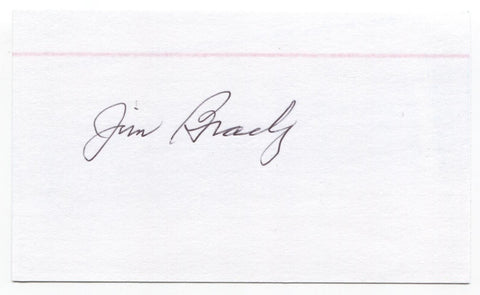 Jim Brady